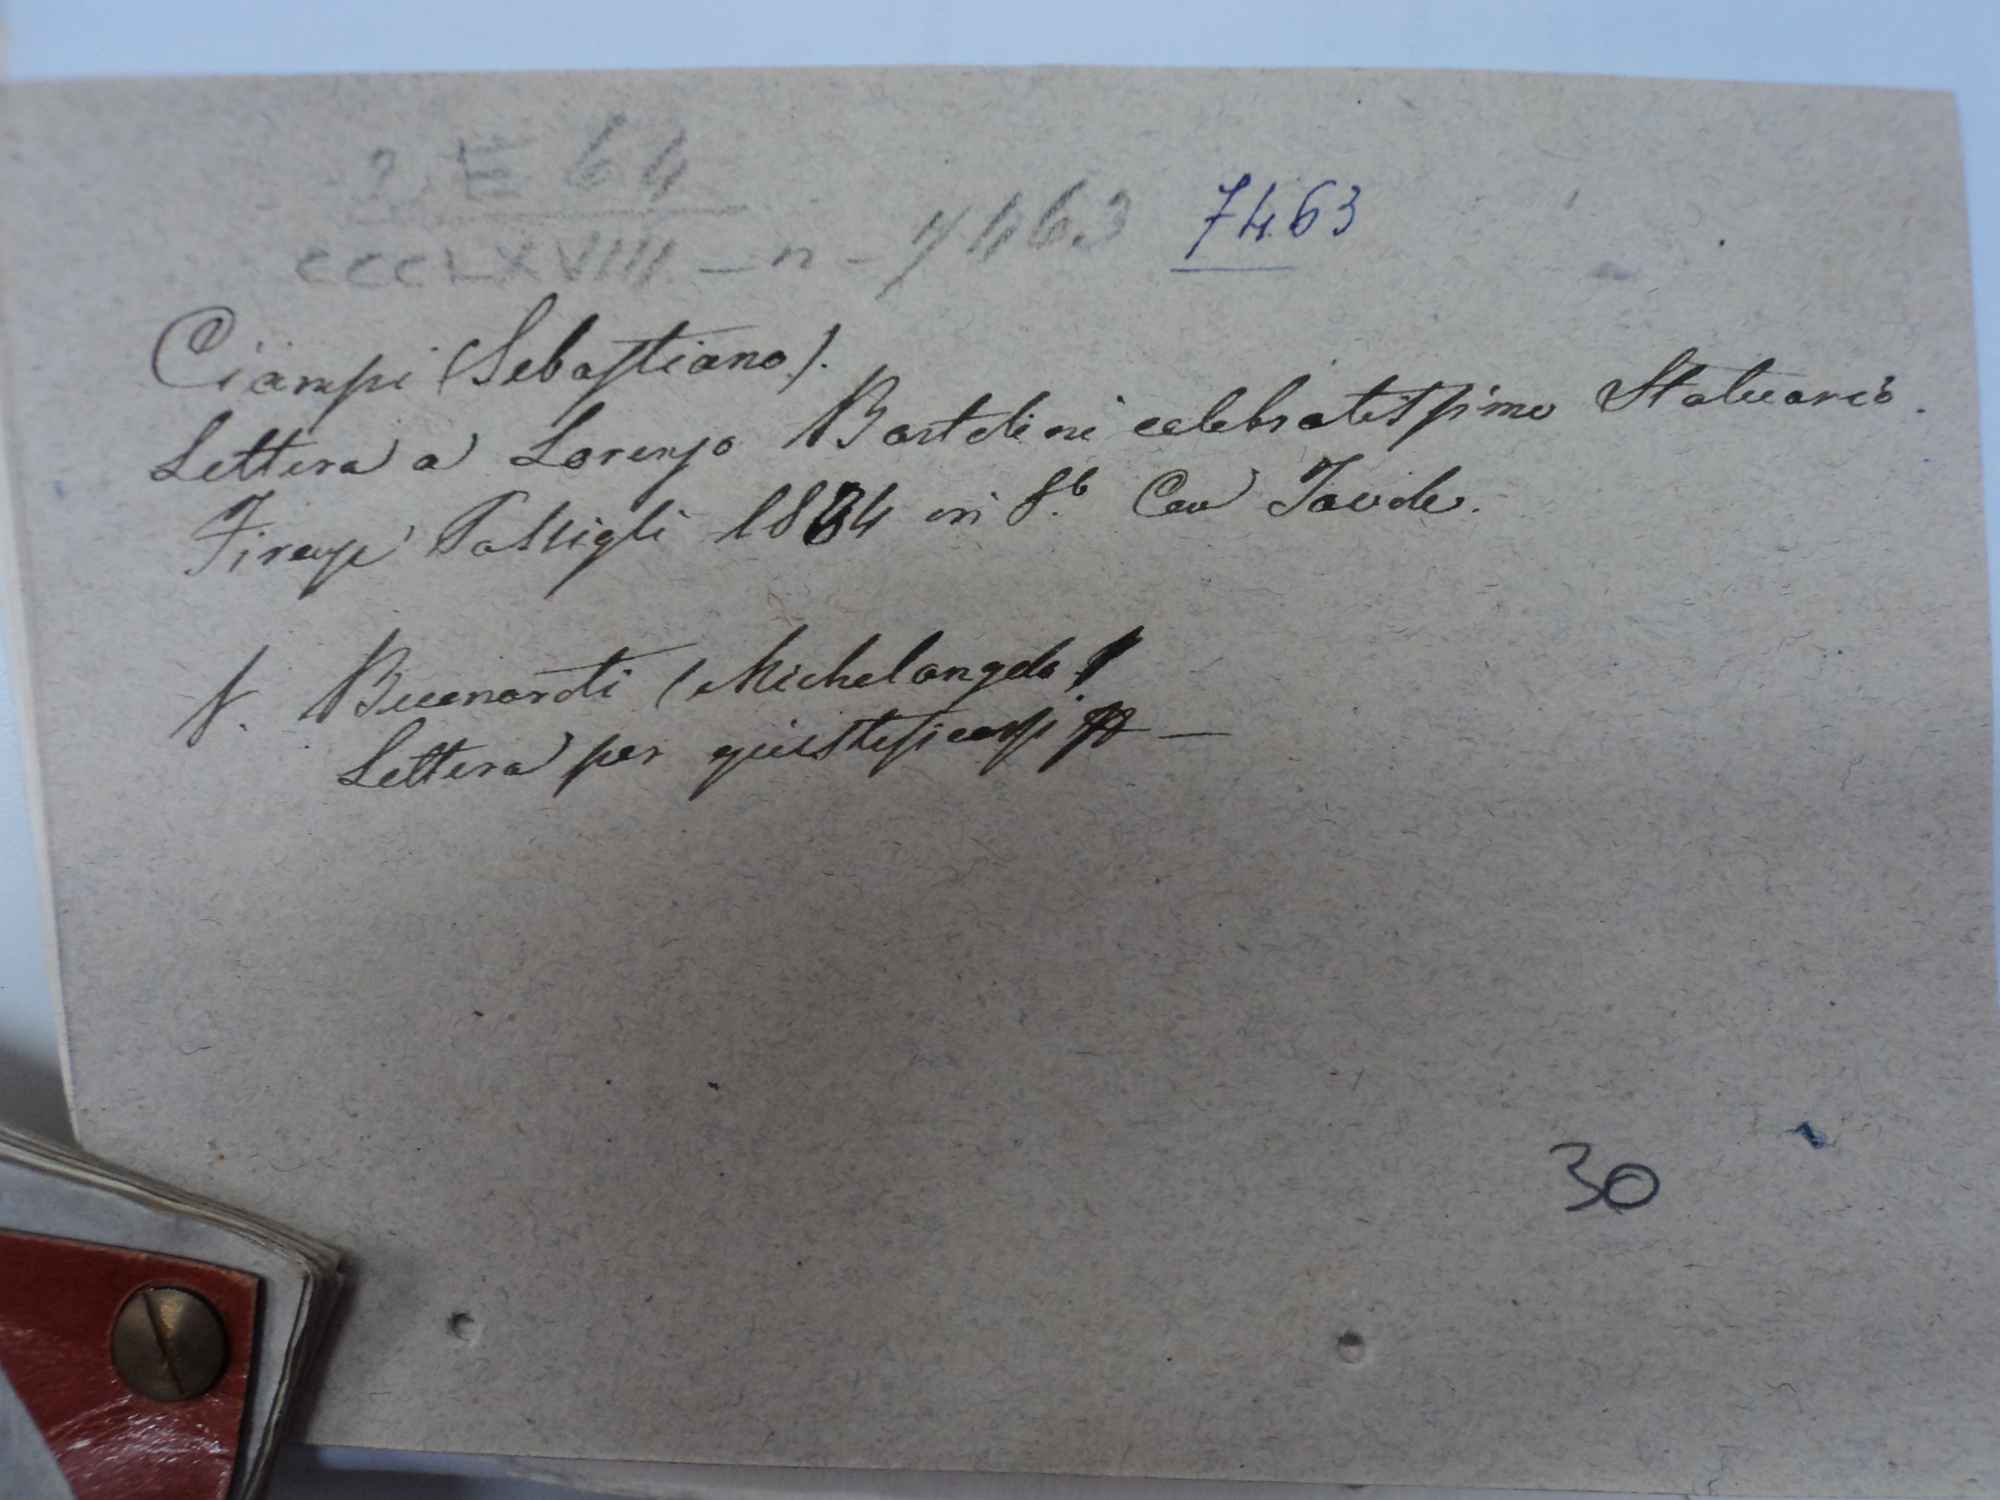 2 E 64
CCCLXVIII. - n - 7463 7463
Ciampi (Sebastiano).
Lettera a Lorenzo Bartolini celebratissimo Statuario.
Firenze Passigli 1834 in 8.º Con Tavole.
V. Buonaroti (Michelangelo)
Lettera per giustificarsi —
30